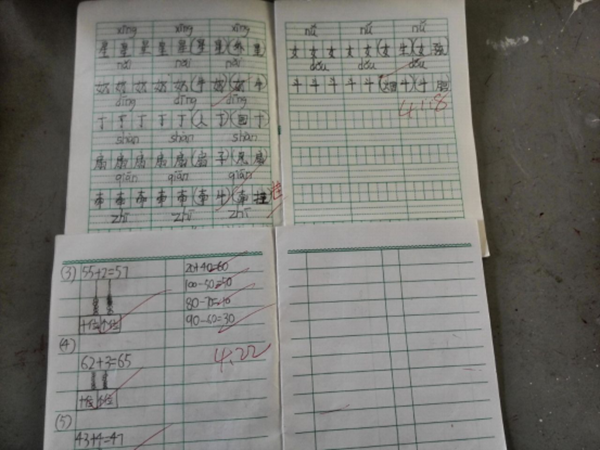 xīng xīng xīng
星 星 星 星 星 星
nǎi nǎi nǎi
奶 奶 奶 奶 奶 (牛 奶) (奶 牛)
dīng dīng dīng
丁 丁 丁 丁 丁 (人 丁) (园 丁)
shàn shàn shàn
扇 扇 扇 扇 扇 (扇 子)
qiān qiān qiān
牵 牵 牵 牵 牵 (牵 牛) (牵 挂)
zhī zhī zhī
nǚ nǚ nǚ
女 女 女 女 女 (女 生) (女 孩)
dǒu dǒu dǒu
斗 斗 斗 斗 斗
4.18
(3) 55+2=57
十位 个位
(4)
62+3=65
十位 个位
(5)
43+4=47
20+40=60
100-50=50
80-70=10
90-60=30
4.22